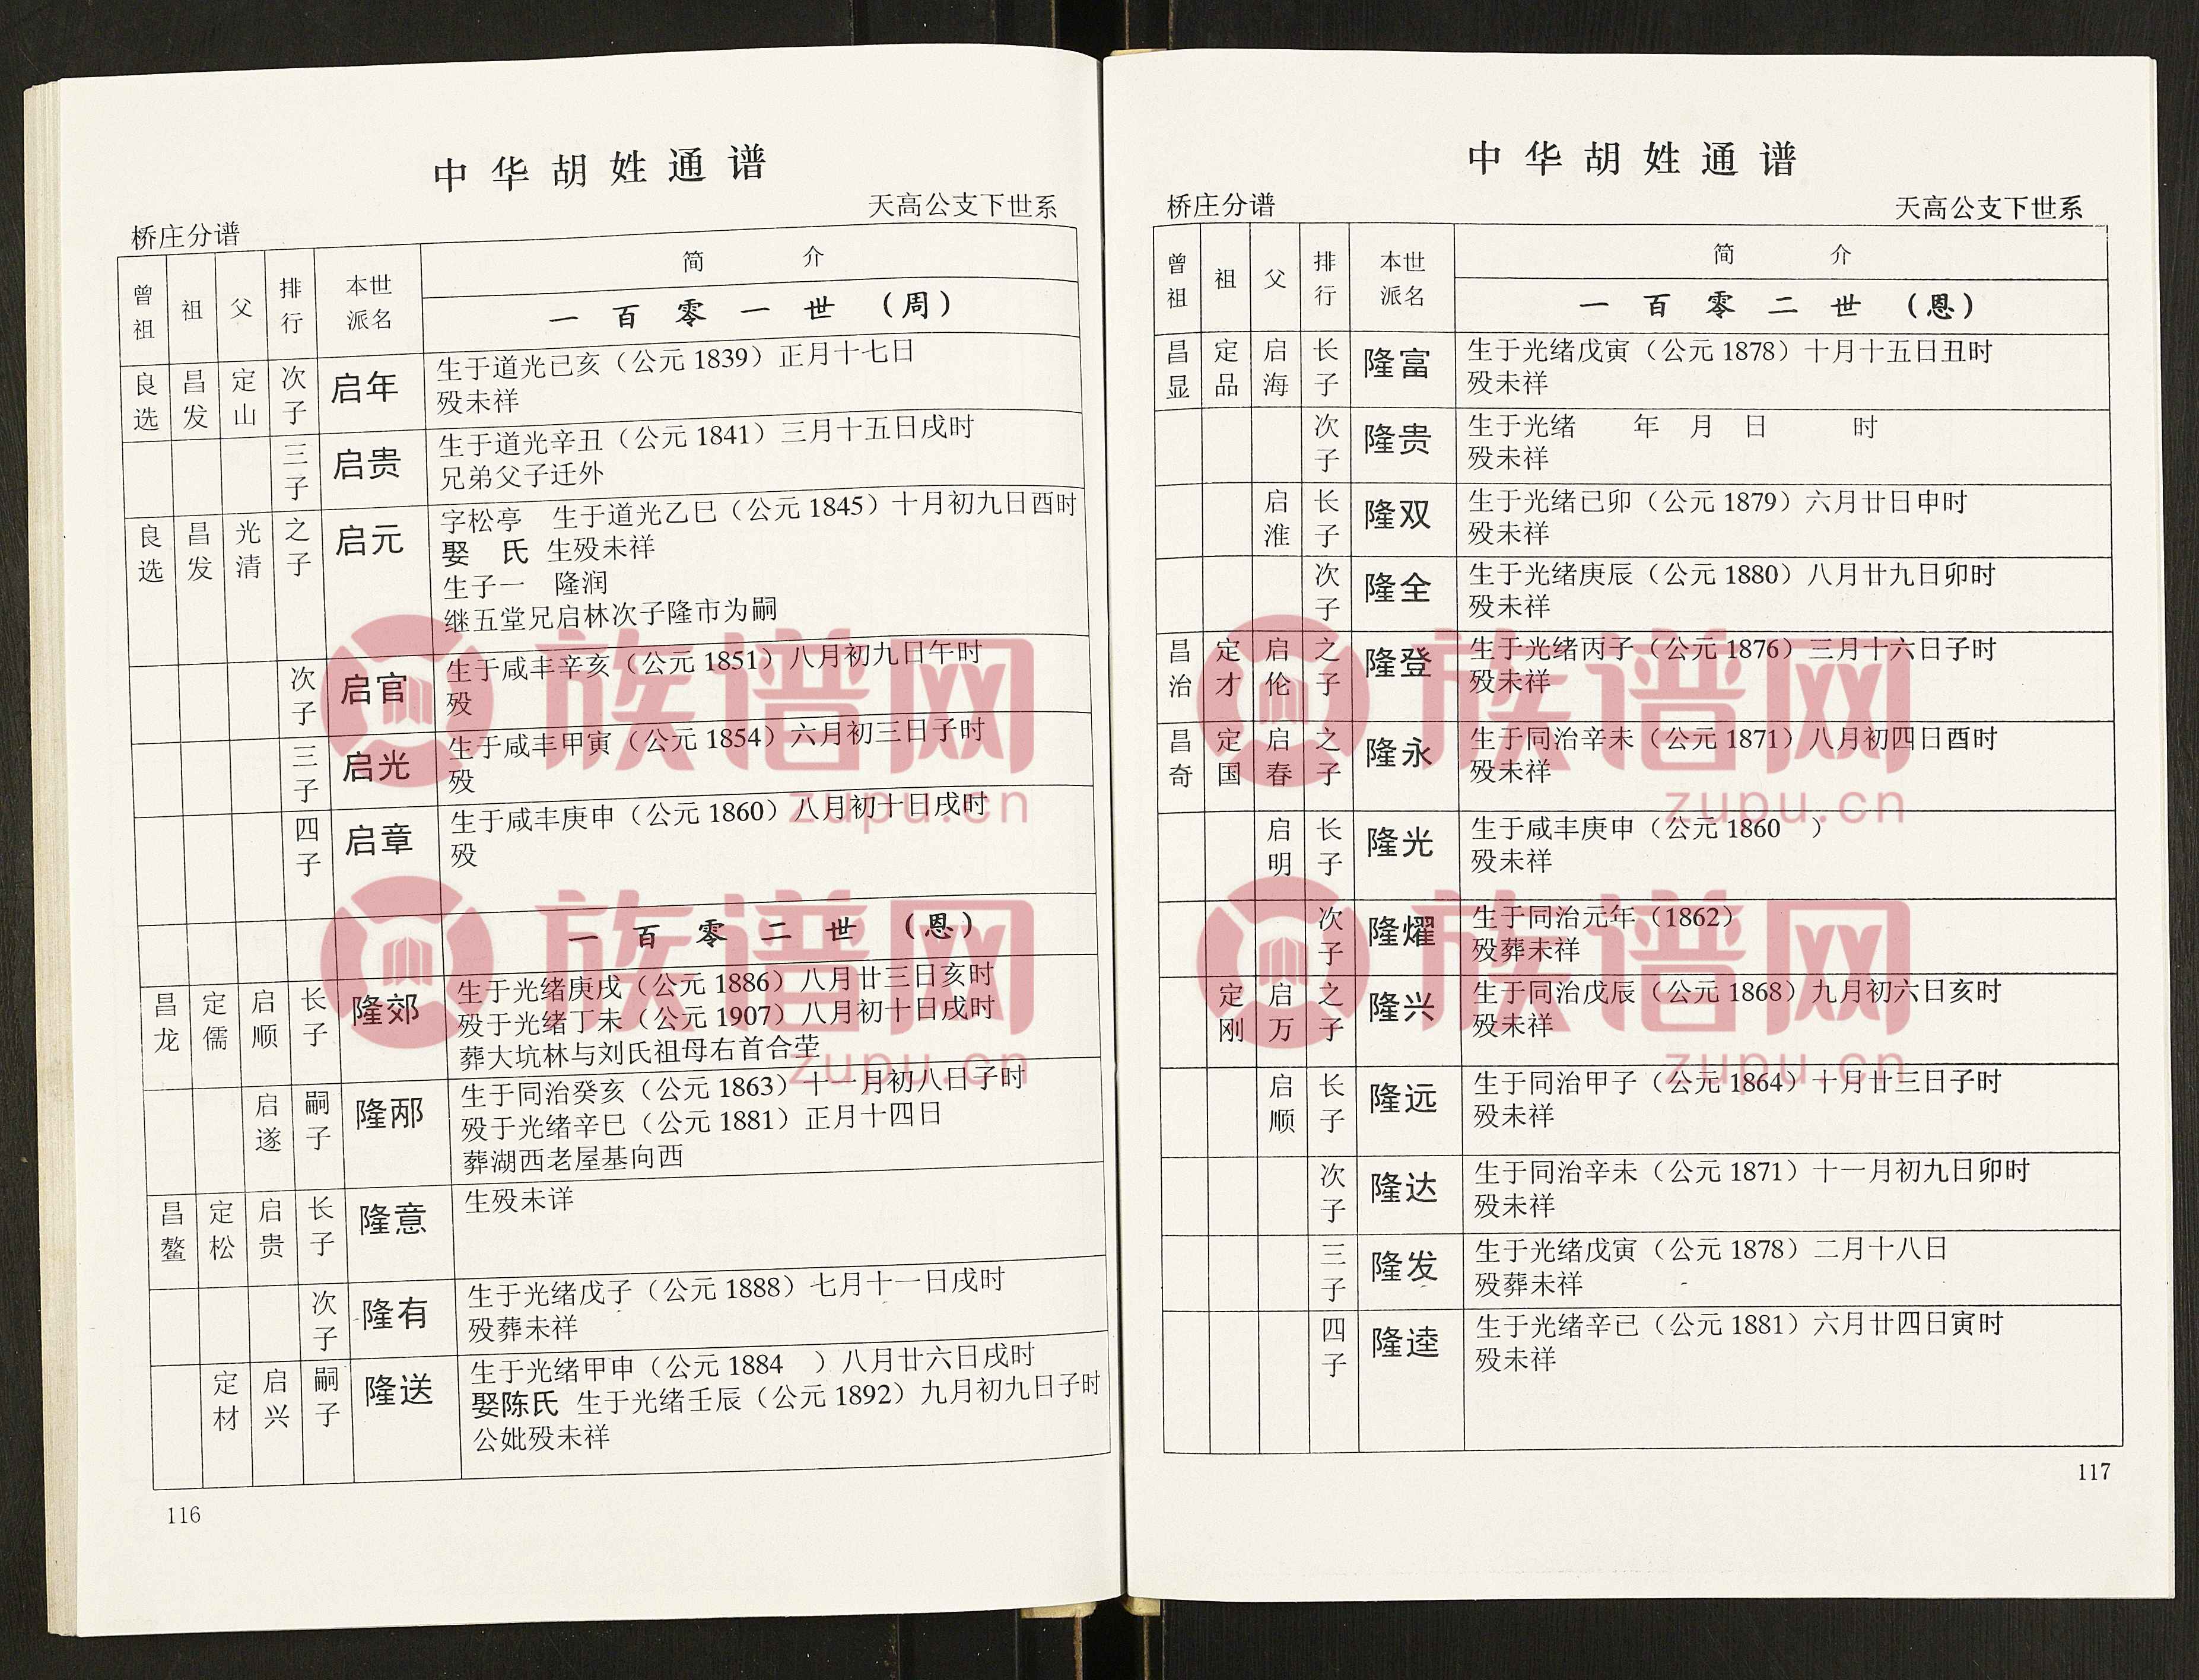 中华胡姓通谱
桥庄分谱
天高公支下世系
曾祖 祖 父 排行 本世派名 简 介
一百零一世（周）
良选 昌发 定山 次子 启年 生于道光已亥（公元1839）正月十七日
殁未祥
三子 启贵 生于道光辛丑（公元1841）三月十五日戌时
兄弟父子迁外
良选 昌发 光清 之子 启元 字松亭 生于道光乙巳（公元1845）十月初九日酉时
娶 氏 生殁未祥
生子一 隆润
继五堂兄启林次子隆市为嗣
次子 启官 生于咸丰辛亥（公元1851）八月初九日午时
殁
三子 启光 生于咸丰甲寅（公元1854）六月初三日子时
殁
四子 启章 生于咸丰庚申（公元1860）八月初十日戌时
殁
一百零二世（恩）
昌龙 定儒 启顺 长子 隆郊 生于光绪庚戌（公元1886）八月廿三日亥时
殁于光绪丁未（公元1907）八月初十日戌时
葬大坑林与刘氏祖母右首合茔
启遂 嗣子 隆邴 生于同治癸亥（公元1863）十一月初八日子时
殁于光绪辛巳（公元1881）正月十四日
葬湖西老屋基向西
昌鳌 定松 启贵 长子 隆意 生殁未详
次子 隆有 生于光绪戊子（公元1888）七月十一日戌时
殁葬未祥
定材 启兴 嗣子 隆送 生于光绪甲申（公元1884 ）八月廿六日戌时
娶陈氏 生于光绪壬辰（公元1892）九月初九日子时
公妣殁未祥
116
中华胡姓通谱
桥庄分谱
天高公支下世系
曾祖 祖 父 排行 本世派名 简 介
一百零二世（恩）
昌显 定品 启海 长子 隆富 生于光绪戊寅（公元1878）十月十五日丑时
殁未祥
次子 隆贵 生于光绪 年 月 日 时
殁未祥
启淮 长子 隆双 生于光绪已卯（公元1879）六月廿日申时
殁未祥
次子 隆全 生于光绪庚辰（公元1880）八月廿九日卯时
殁未祥
昌治 定才 启伦 之子 隆登 生于光绪丙子（公元1876）三月十六日子时
殁未祥
昌奇 定国 启春 之子 隆永 生于同治辛未（公元1871）八月初四日酉时
殁未祥
启明 长子 隆光 生于咸丰庚申（公元1860 ）
殁未祥
次子 隆燿 生于同治元年（1862）
殁葬未祥
定刚 启万 之子 隆兴 生于同治戊辰（公元1868）九月初六日亥时
殁未祥
启顺 长子 隆远 生于同治甲子（公元1864）十月廿三日子时
殁未祥
次子 隆达 生于同治辛未（公元1871）十一月初九日卯时
殁未祥
三子 隆发 生于光绪戊寅（公元1878）二月十八日
殁葬未祥
四子 隆逵 生于光绪辛已（公元1881）六月廿四日寅时
殁未祥
117
族谱网
zupu.cn
族谱网
zupu.cn
族谱网
zupu.cn
族谱网
zupu.cn